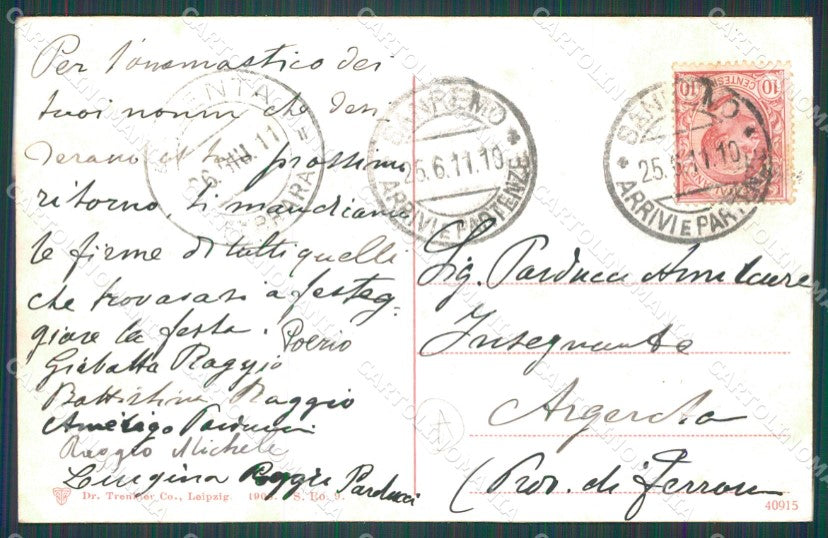 Per l'onomastico dei
tuoi nonni che desi
derano il tuo prossimo
ritorno, ti mandiamo
le firme di tutti quelli
che trovavasi a festeg-
giare la festa. Poerio
Giabatta Raggio
Battistina Raggio
Amerigo Parducci
Raggio Michele
Luigina Raggio Parducci
Dr. Trenkler Co., Leipzig 190 S. Ro. 9.
SANREMO
25.6.11.19
ARRIVI E PARTENZE
SANREMO
25.6.11.19
ARRIVI E PARTENZE
CENTESIMI
10
10
Sig. Parducci Amilcare
Insegnante
Argenta
(Prov. di Ferrara
40915
CARTOLINOMANIA